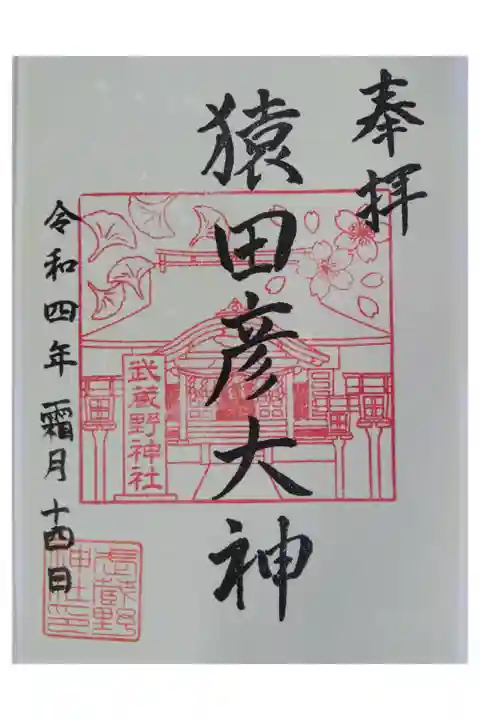 奉拝
猿田彦大神
武蔵野神社
令和四年 霜月 十四日
武蔵野神社印